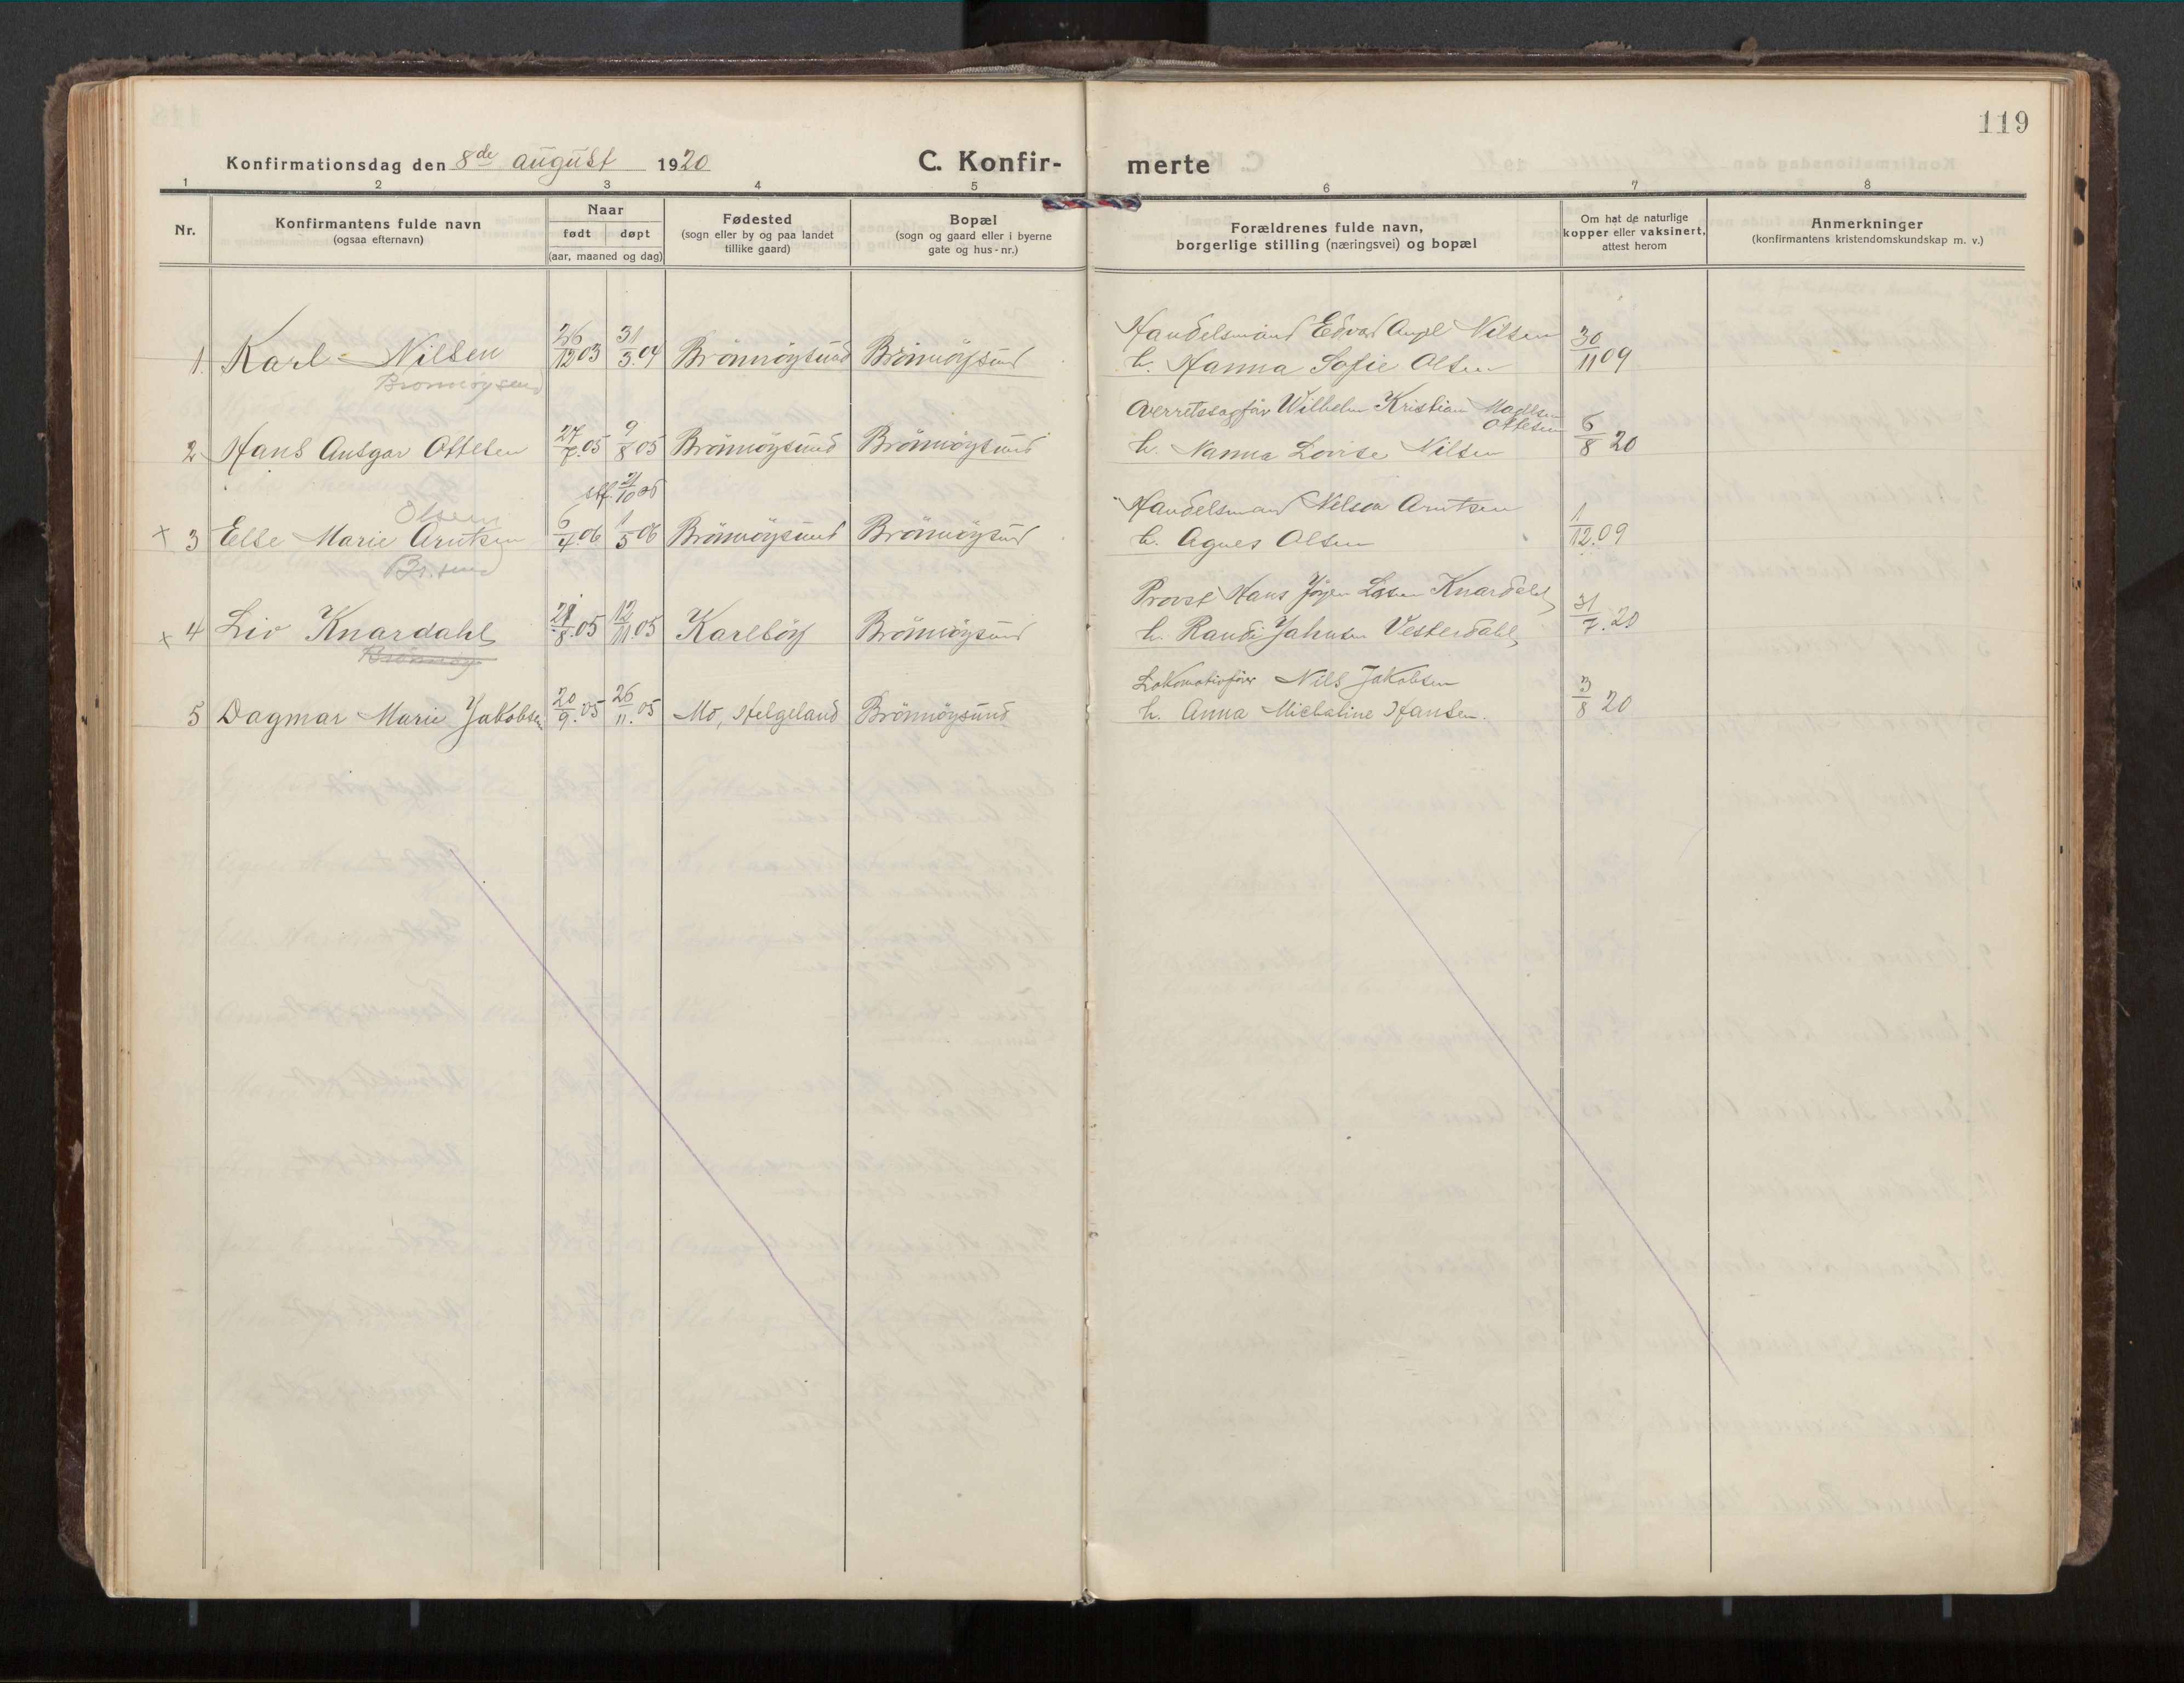 119
Konfirmationsdag den 8de august 1920
C. Konfir-
merte
1 2 3 4 5 6 7 8
Nr.
Konfirmantens fulde navn
(ogsaa efternavn)
Naar
født døpt
(aar, maaned og dag)
Fødested
(sogn eller by og paa landet
tillike gaard)
Bopæl
(sogn og gaard eller i byerne
gate og hus-nr.)
Forældrenes fulde navn,
borgerlige stilling (næringsvei) og bopæl
Om hat de naturlige
kopper eller vaksinert,
attest herom
Anmerkninger
(konfirmantens kristendomskundskap m. v.)
Handelsmand Edvard Nilsen
1. Karl Nilsen 26/12 03 31/3.04 Brönnöysund Brönnöysund h. Hanna Sofie Olsen 30/11 09
Brönnöysund
Overretssagfør Wilhelm Kristian Madsen
Ottesen
2 Hans Ansgar Ottesen 27/7.05 9/8 05 Brönnöysund Brönnöysund h. Nanna Lovise Nilsen 6/8 20
stf. 21/10 05
Olsen
Handelsmand Nelson Arntsen
x 3 Else Marie Arntsen 6/4.06 1/5 06 Brönnöysund Brönnöysund h. Agnes Olsen 1/12.09
Br.sund
Provst Hans Jörgen Knardahl
x 4 Liv Knardahl 21/8.05 12/11.05 Karlsöy Brönnöysund h. Randi Vesterdahl 31/7.20
Brönnöy
Lokomotivfører Nils Jakobsen
5 Dagmar Marie Jakobsen 20/9.05 26/11.05 Mo, Helgeland Brönnöysund h. Anna Michaline Hansen. 3/8 20